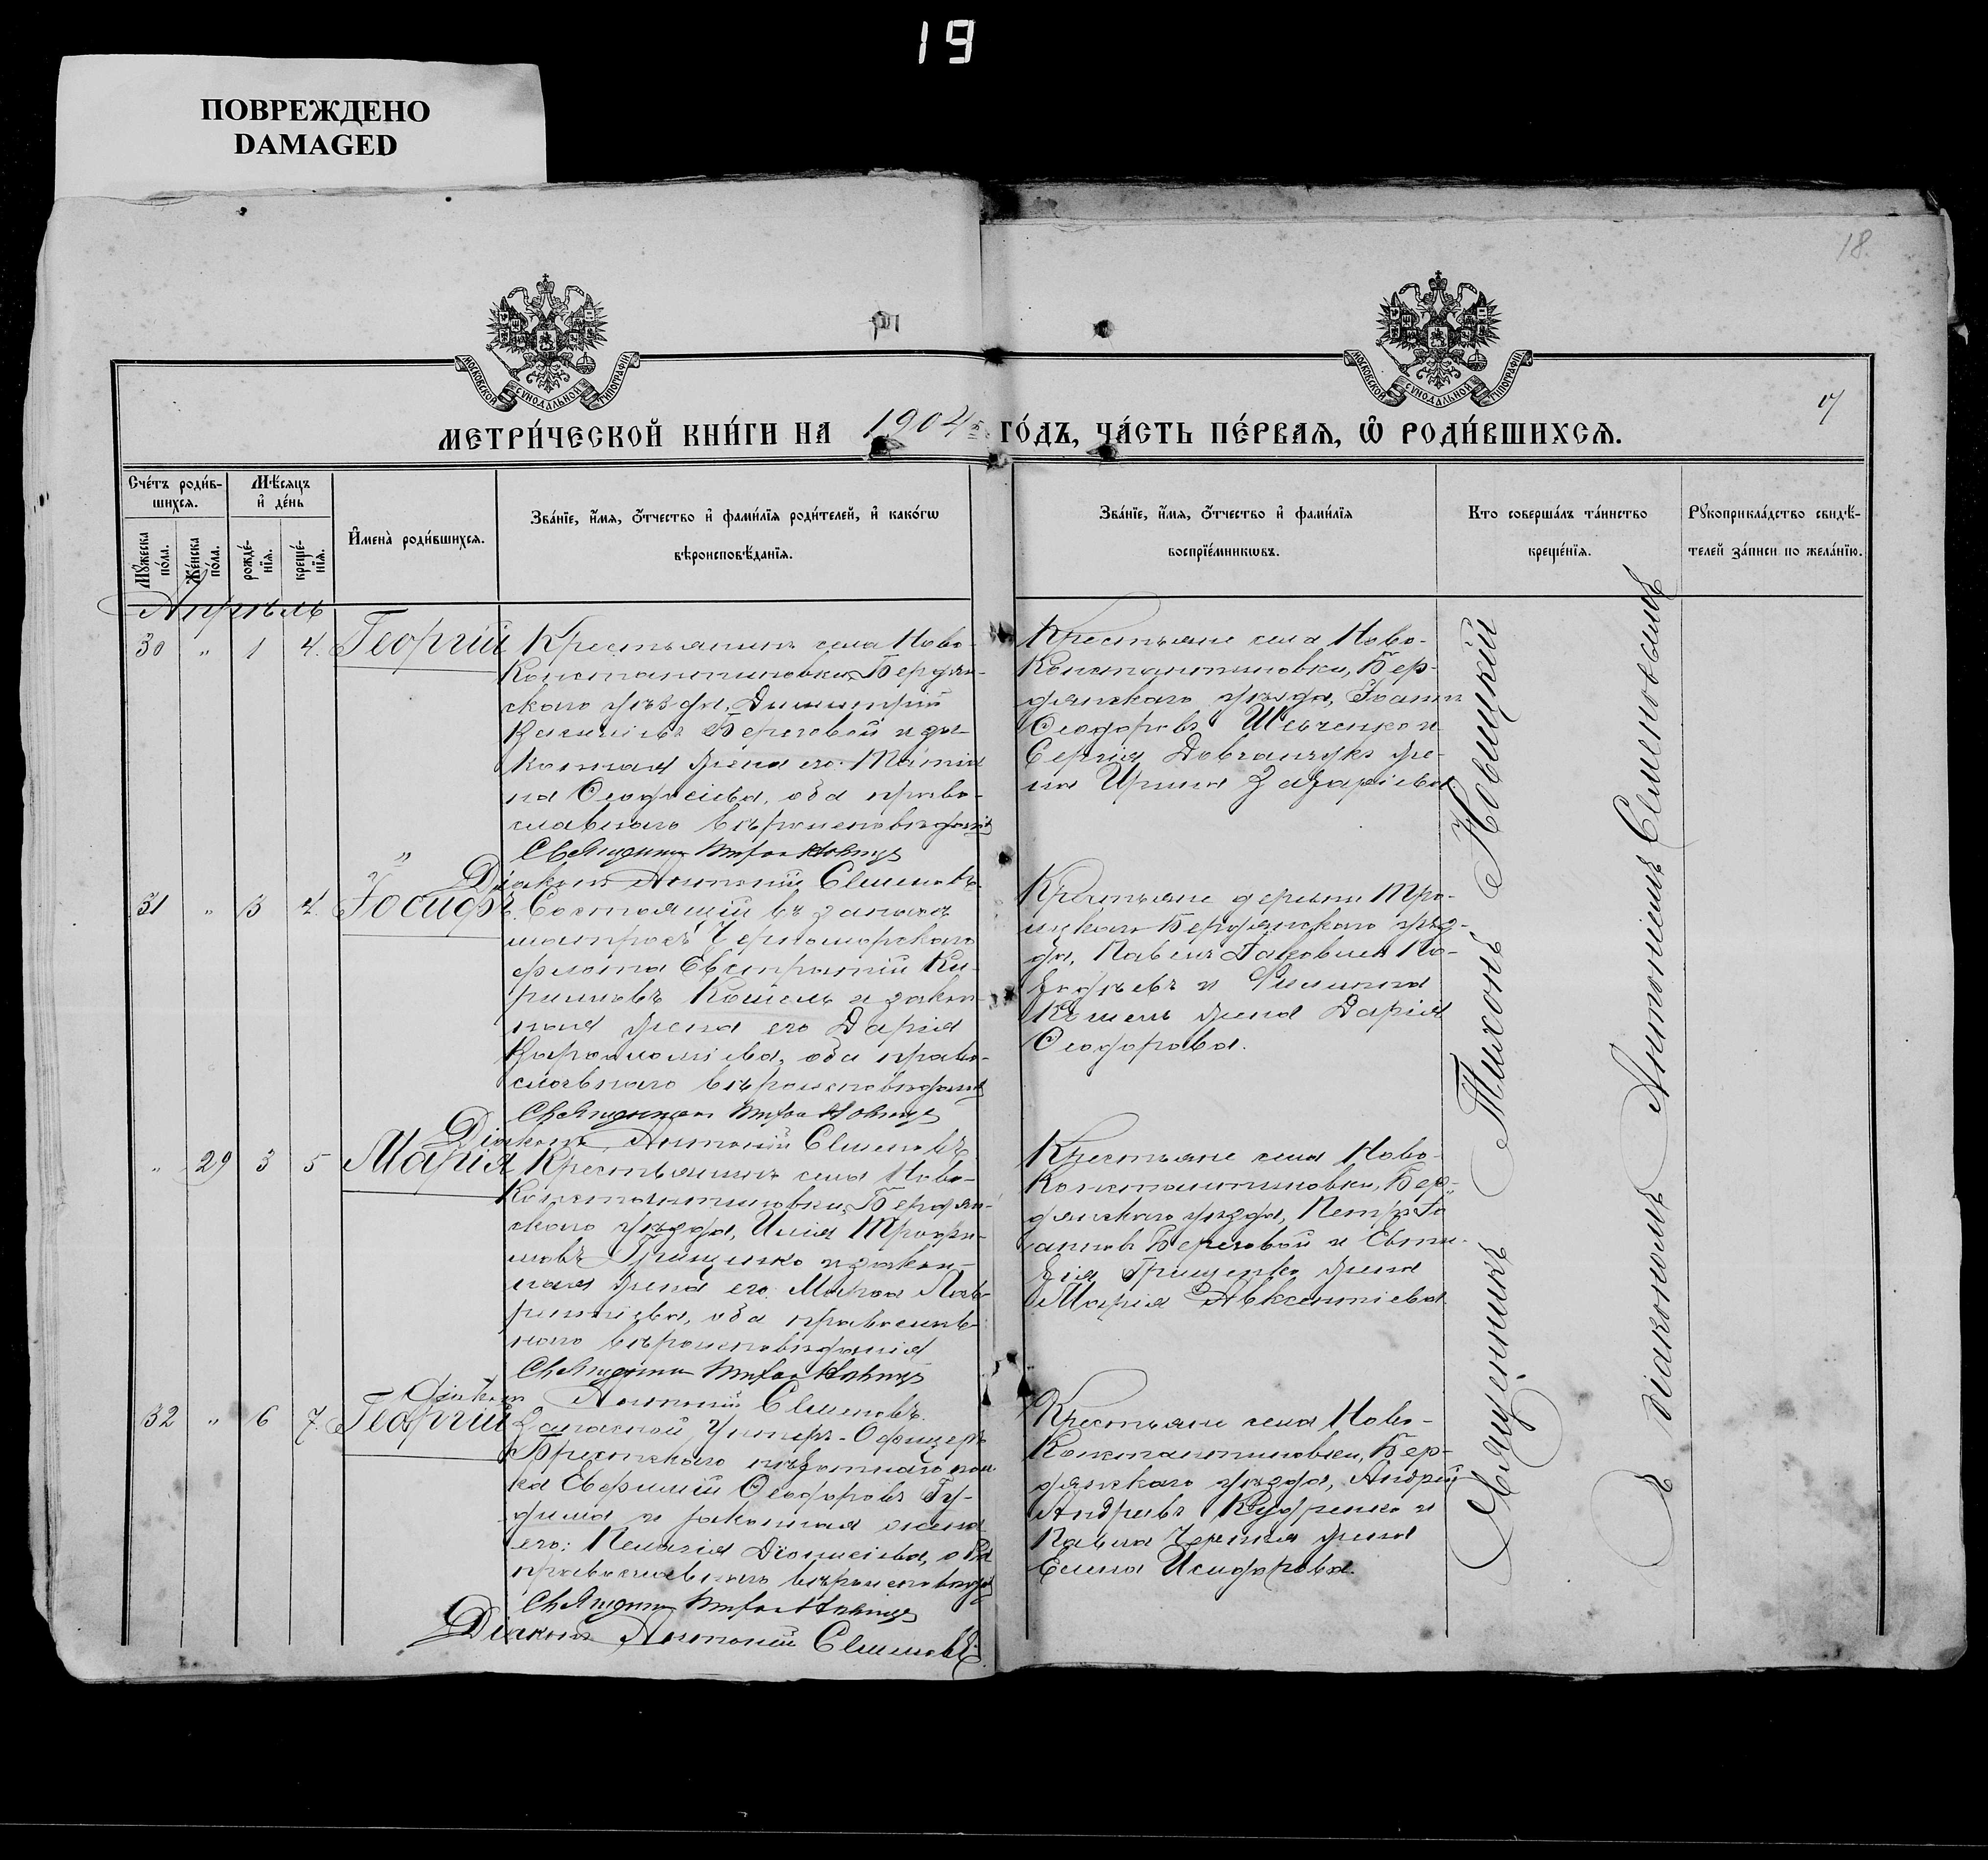 19
ПОВРЕЖДЕНО
DAMAGED
18.
МОСКОВСКОЙ СУНОДАЛЬНОЙ ТИПОГРАФІИ
МОСКОВСКОЙ СУНОДАЛЬНОЙ ТИПОГРАФІИ
МЕТРИ́ЧЕСКОЙ КНИ́ГИ НА 1904 ГО́ДЪ, ЧА́СТЬ ПЕ́РВАЯ, Ѡ РОДИ́ВШИХСЯ.
Сче́тъ роди́в-
шихся.
Мѣсяцъ
и де́нь
Му́жеска
по́ла.
Же́нска
по́ла.
рожде́-
нїя.
креще́-
нїя.
Имена̀ роди́вшихся.
Зва́нїе, и́мя, о́тчество и фами́лїя роди́телей, и како́гѡ
вѣроисповѣ́данїя.
Зва́нїе, и́мя, о́тчество и фами́лїя
воспрїе́мникѡвъ.
Кто соверша́лъ та́инство
креще́нїя.
Рукоприкла́дство свидѣ́-
телей за́писи по жела́нїю.
Апрѣль
30 " 1 4. Георгій
Крестьянинъ села Ново-
Константиновки, Бердян-
скаго уѣзда, Димитрій
Береговой и за-
конная жена его: Татіа-
на Ѳеодосіева, оба право-
славнаго вѣроисповѣданія
Священникъ Тихонъ Новицкій
Діаконъ Антоній Семеновъ
Крестьяне села Ново-
Константиновки, Бер-
дянскаго уѣзда, Іоаннъ
Ѳеодоровъ Шевченко и
Сергія Довганчукъ же-
на Ирина Захаріева.
31 " 3 4. Іосифъ
Состоящій въ запасѣ
матросъ Черноморскаго
флота Евстратій Ки-
рилловъ Кошель и закон-
ная жена его Дарія
оба право-
славнаго вѣроисповѣданія
Священникъ Тихонъ Новицкій
Діаконъ Антоній Семеновъ
Крестьяне деревни Тро-
ицкаго Бердянскаго уѣз-
да, Павелъ Іаковлевъ
и Филиппа
Кошель жена Дарія
Ѳеодорова.
" 29 3 5 Марія
Крестьянинъ села Ново-
Константиновки, Бердян-
скаго уѣзда, Илія Трофи-
мовъ Грищенко и закон-
ная жена его: Марѳа Лав-
рентіева, оба православ-
наго вѣроисповѣданія
Священникъ Тихонъ Новицкій
Діаконъ Антоній Семеновъ.
Крестьяне села Ново-
Константиновки, Бер-
дянскаго уѣзда, Петръ Іо-
анновъ Береговой и Евти-
хія Грищенко жена
Марія Авксентіева
32 " 6 7. Георгій
Запасной Унтеръ-Офицеръ
Брестскаго пѣхотнаго пол-
ка Евфимій Ѳеодоровъ Гу-
дыма и законная жена
его: Пелагія Діонисіева, оба
православнаго вѣроисповѣданія
Священникъ Тихонъ Новицкій
Діаконъ Антоній Семеновъ.
Крестьяне села Ново-
Константиновки, Бер-
дянскаго уѣзда, Андрей
Андреевъ Кудренко и
Павла жена
Елена Исидорова.
Священникъ Тихонъ Новицкій
съ діакономъ Антоніемъ Семеновымъ